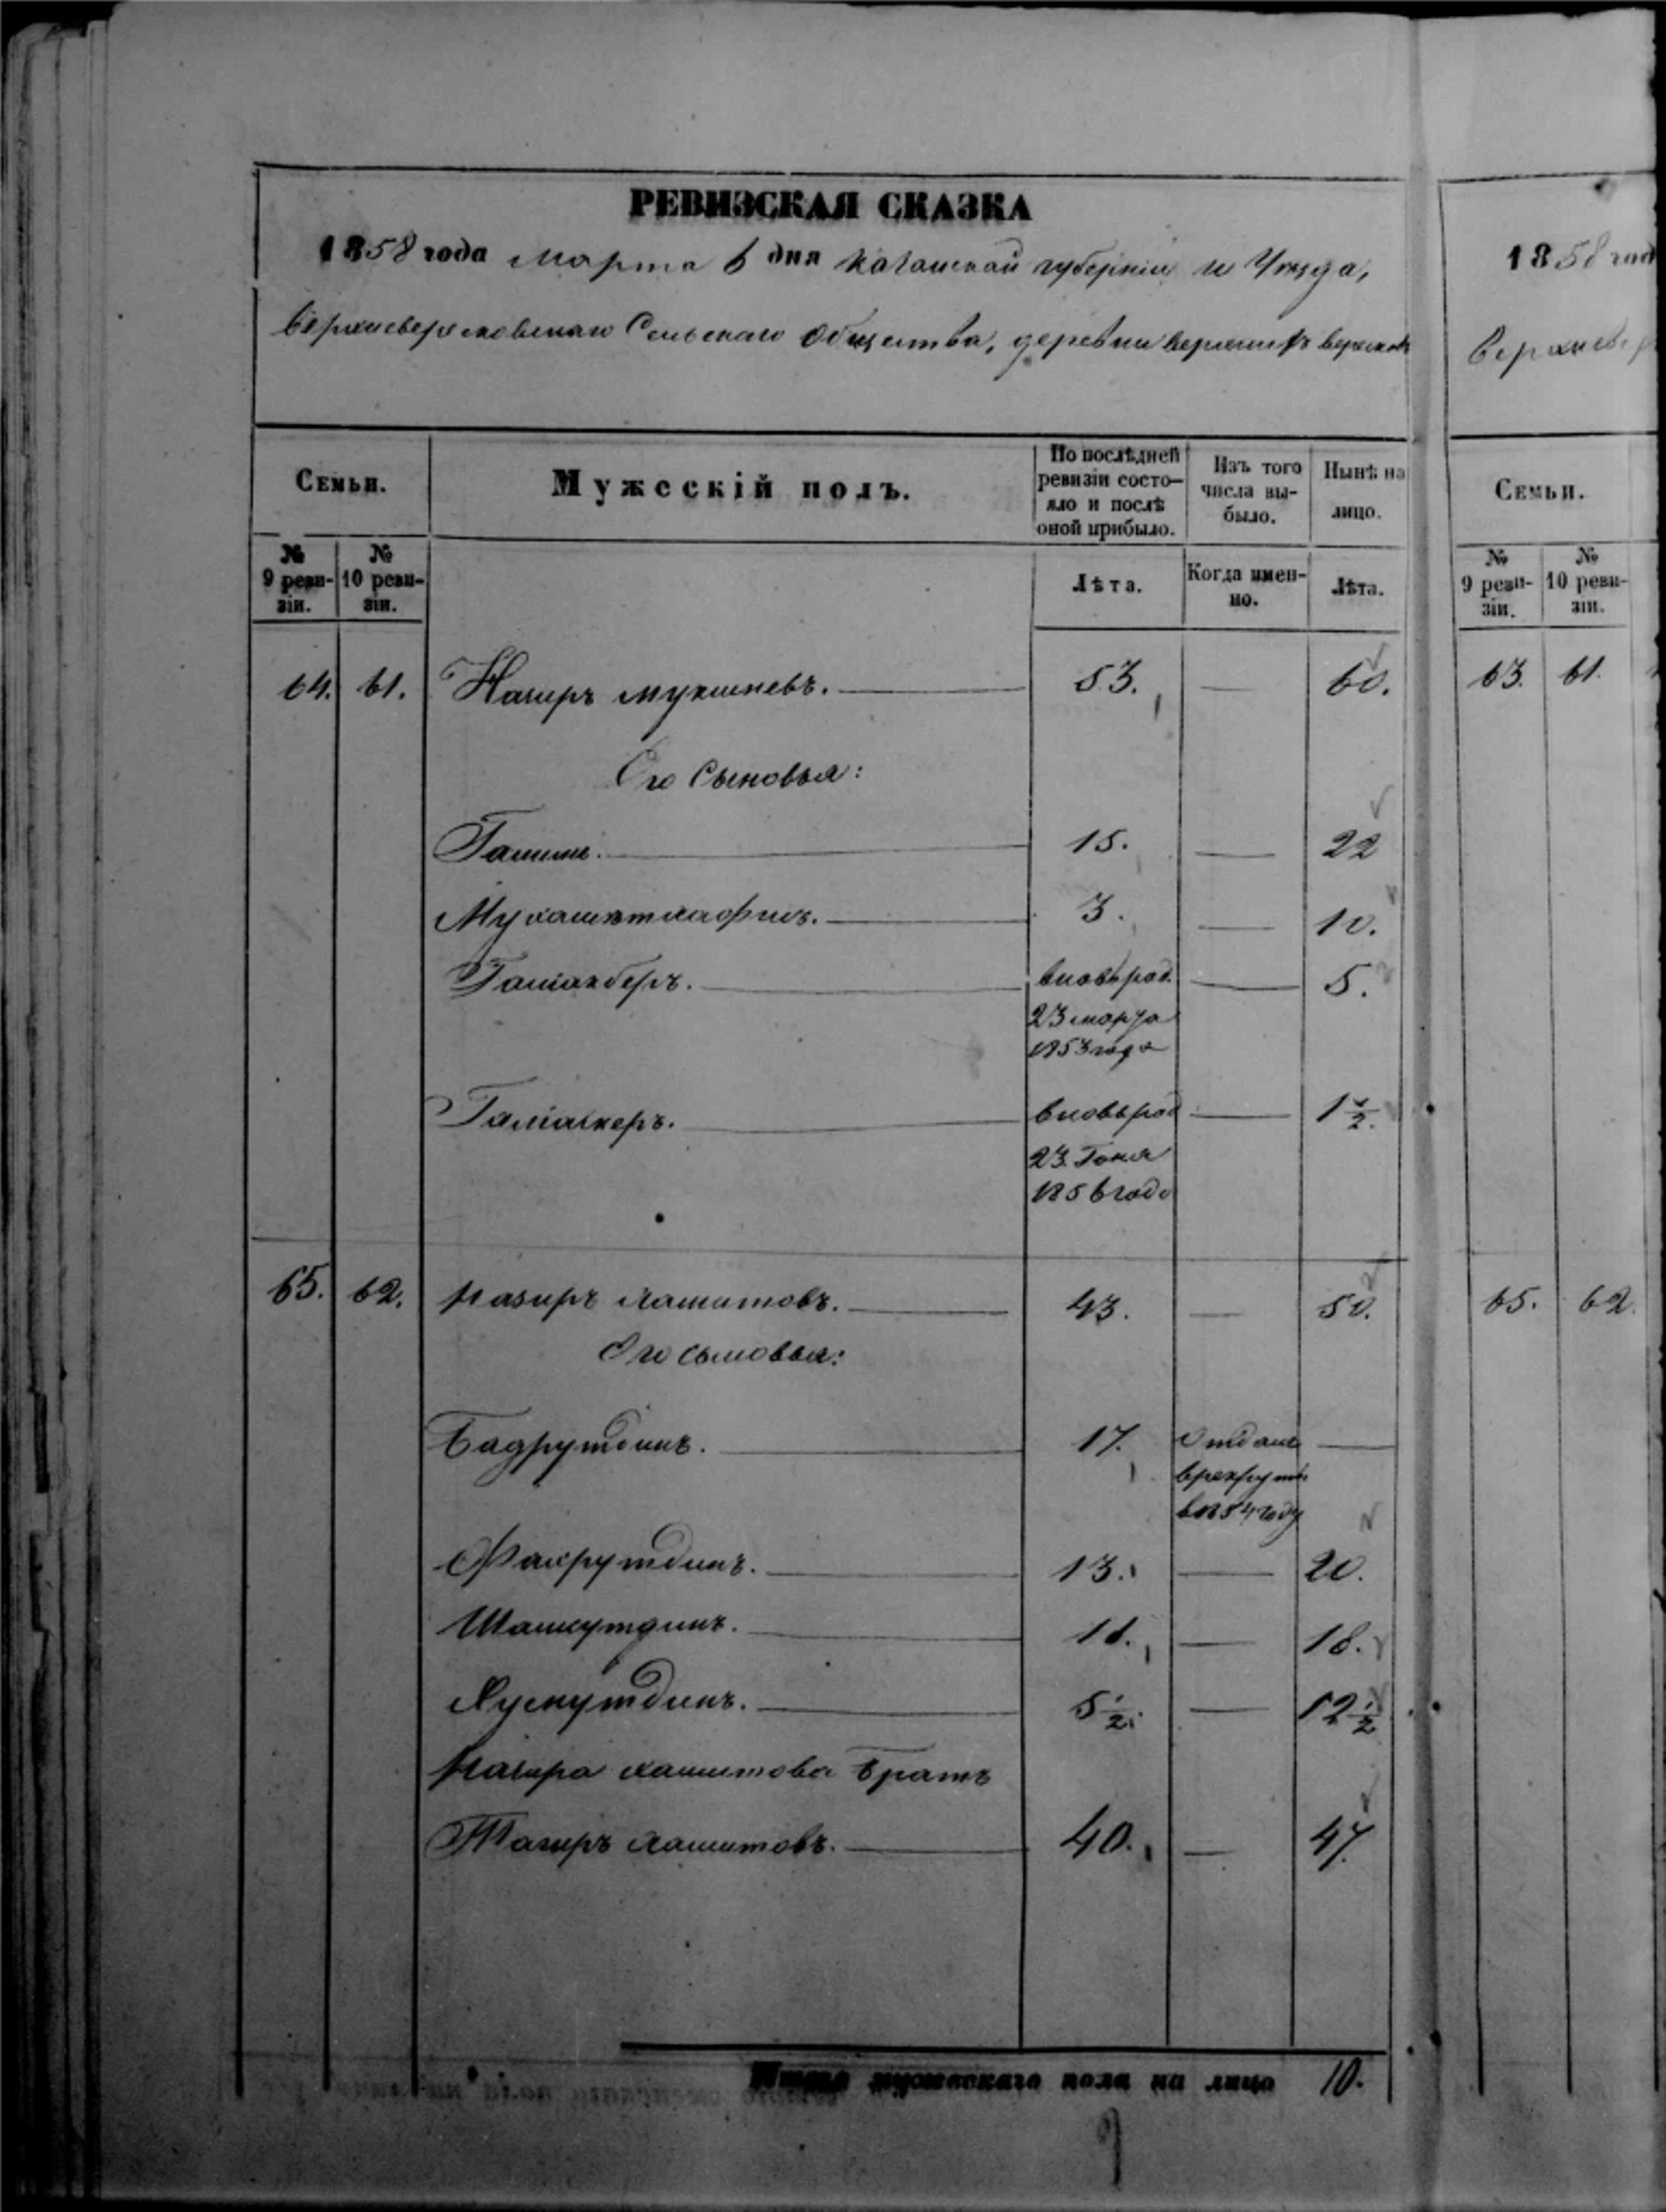 РЕВИЗСКАЯ СКАЗКА
1858 года марта 6 дня Казанской губерніи и Уѣзда,
Сельскаго Общества, деревни
Семьи.
Мужескій полъ.
По послѣдней ревизіи состо-
яло и послѣ
оной прибыло.
Изъ того
числа вы-
было.
Нынѣ на
лицо.
№
9 реви-
зіи.
№
10 реви-
зіи.
Лѣта.
Когда имен-
но.
Лѣта.
64. 61. Нагиръ 53. — 60.
Его Сыновья:
15. — 22
3. — 10.
вновь род. — 5.
23 марта
1853 года
вновь род — 1 1/2.
23
1856 года
65. 62. Назиръ Хамитовъ. 43. — 50.
Его сыновья:
Бадрутдинъ. 17. Отданъ —
в рекруты
в 1854 году
Фахрутдинъ. 13. — 20.
11. — 18.
5 1/2. — 12 1/2
Назира Хамитова братъ
Тагиръ Хамитовъ. 40. — 47.
Итого мужескаго пола на лицо 10.
9
1858 год
Семьи.
№
9 реви-
зіи.
№
10 реви-
зіи.
63. 61.
65. 62.